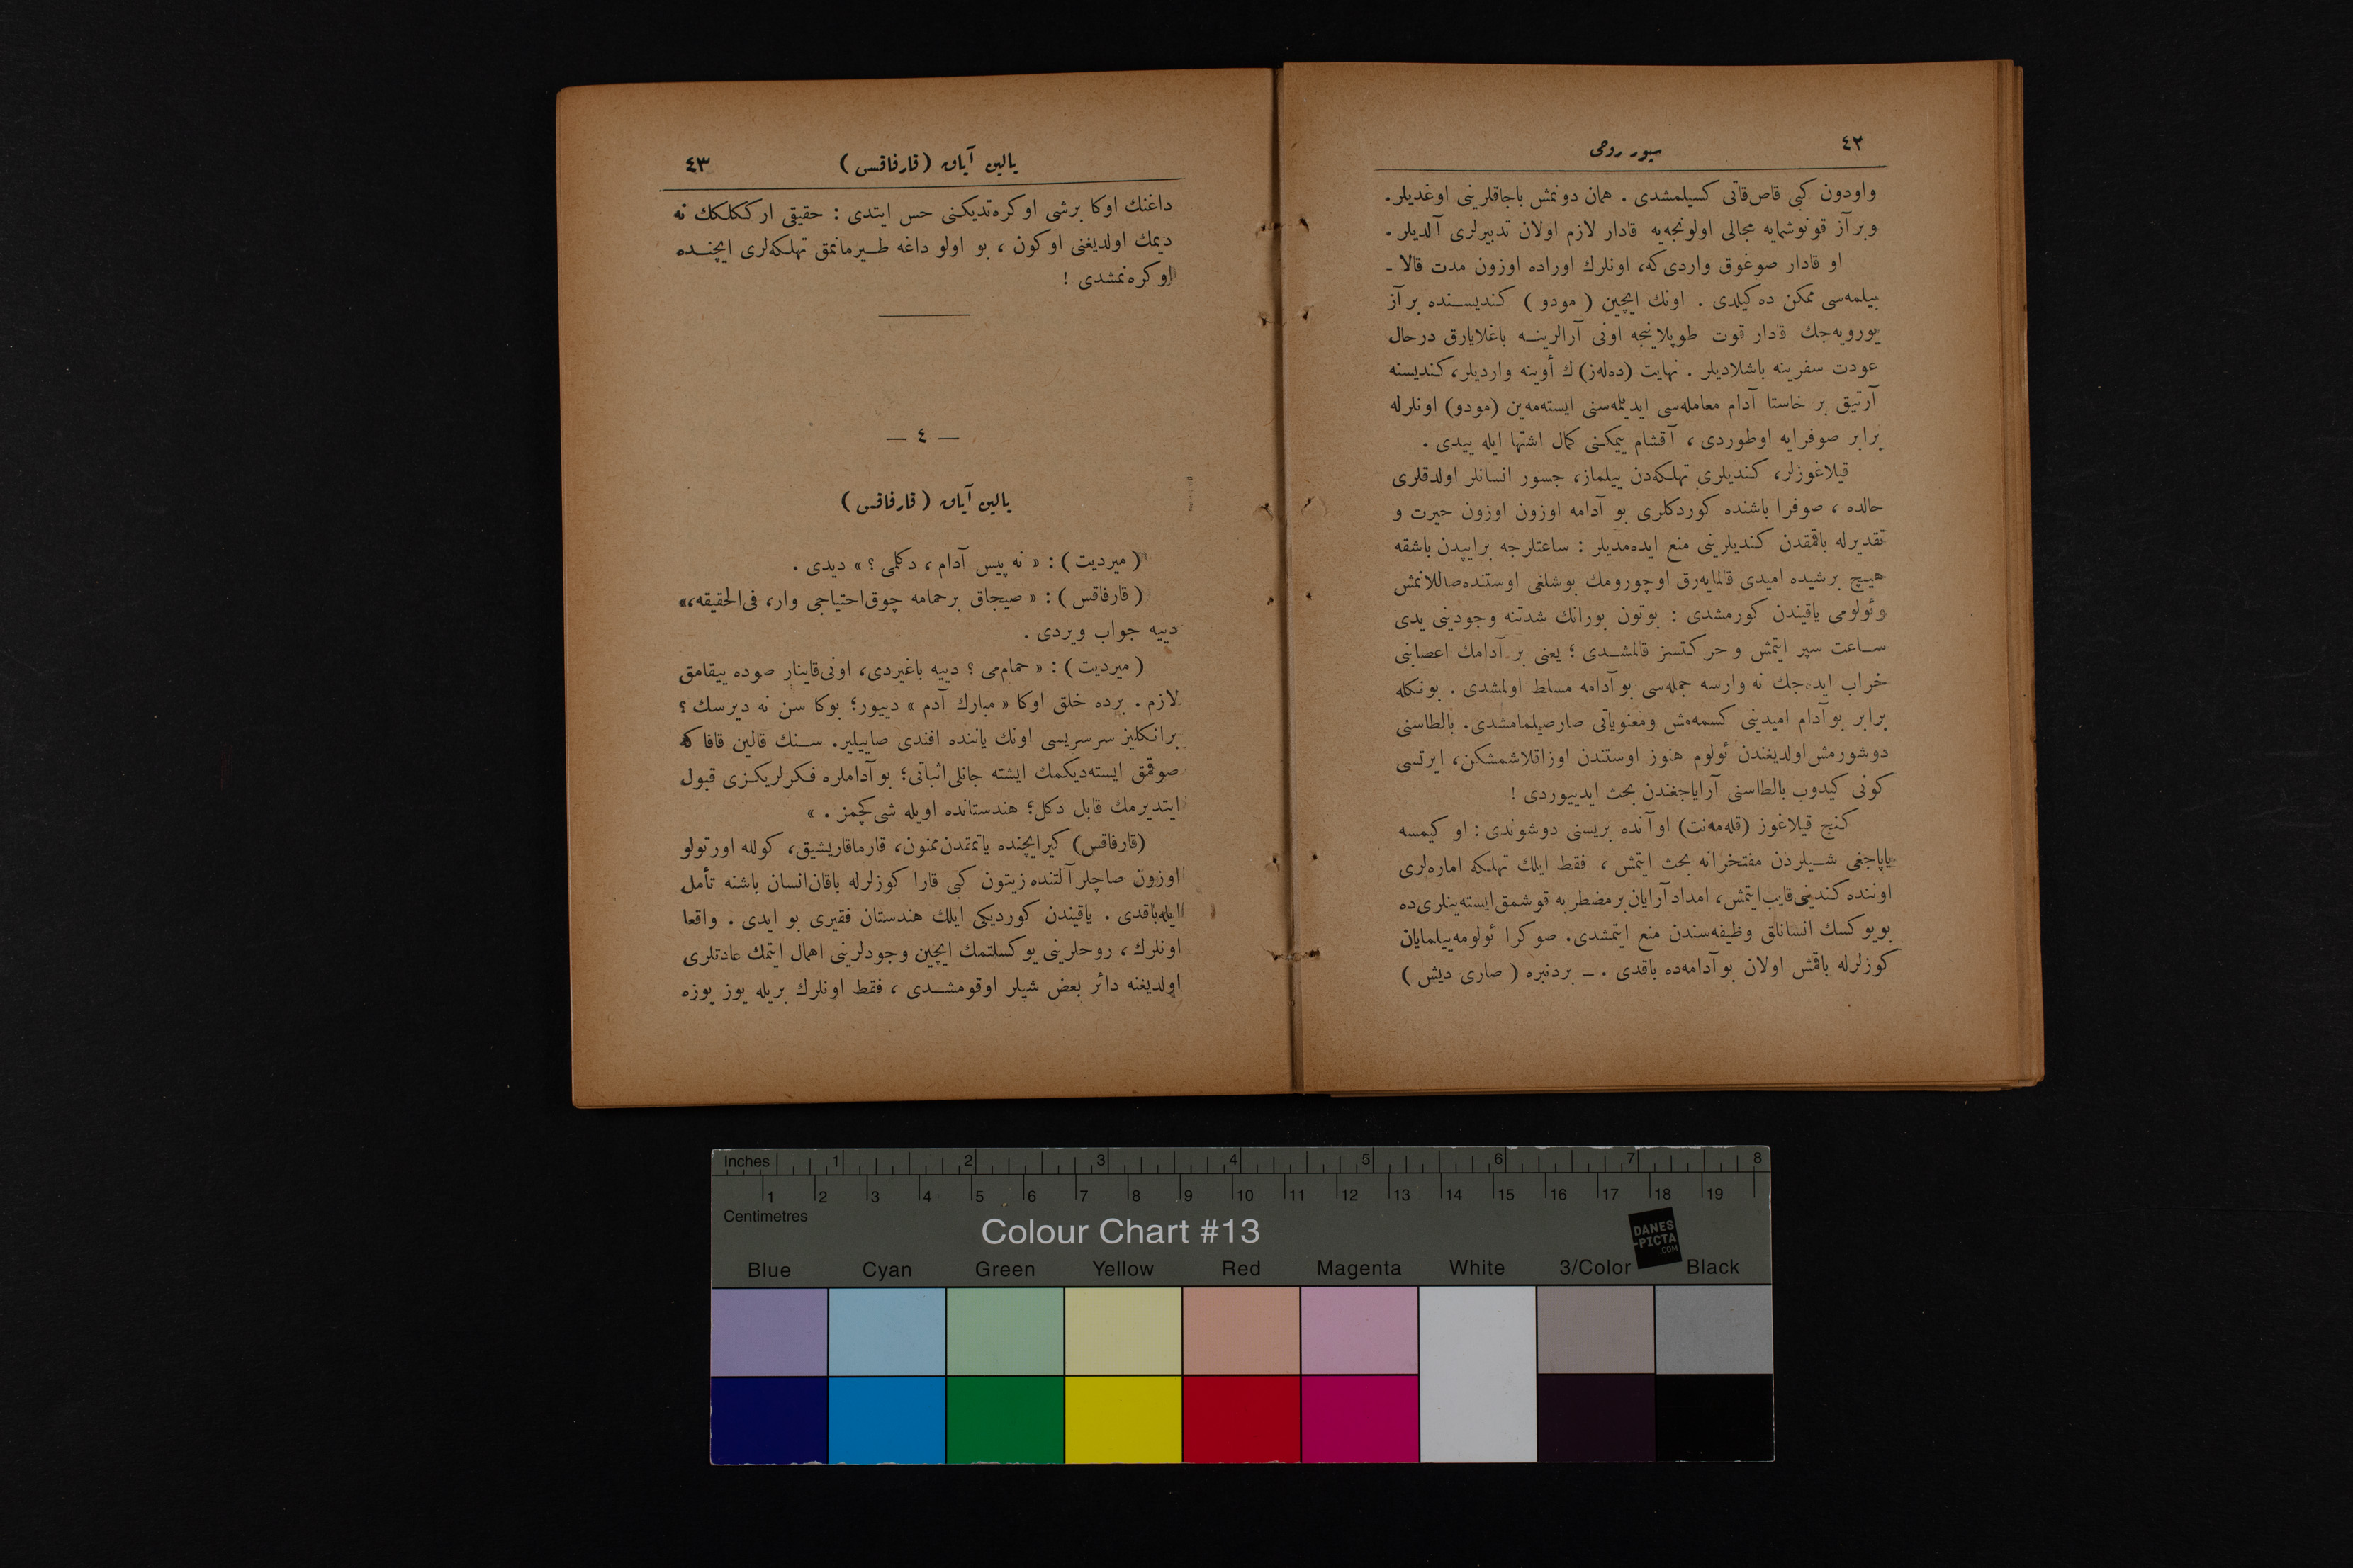 ٤٢
سپور روحی
واودون كبی قاص‌قاتی كسیلمشدی . همان دونمش باجاقلرینی اوغدیلر.
وبرآز قونوشمایه مجالی اولونجه‌یه قادار لازم اولان تدبیرلری آلدیلر.
او قادار صوغوق واردی‌كه، اونلرك اوراده اوزون مدت قالا ـ
بیلمه‌سی ممكن ده‌كیلدی . اونك ایچین ( مودو ) كندیسنده برآز
یورویه‌جك قادار قوت طوپلاینجه اونی آرالرینه باغلایارق درحال
عودت سفرینه باشلادیلر . نهایت (ده‌له‌ز) ك أوینه واردیلر، كندیسنه
آرتیق بر خاستا آدام معامله‌سی ایدیلمه‌سنی ایسته‌مه‌ین (مودو) اونلرله
برابر صوفرایه اوطوردی ، آقشام ییمكنی كمال اشتها ایله ییدی .
قیلاغوزلر، كندیلری تهلكه‌دن ییلماز، جسور انسانلر اولدقلری
حالده ، صوفرا باشنده كوردكلری بو آدامه اوزون اوزون حیرت و
تقدیرله باقمقدن كندیلرینی منع ایده‌مدیلر : ساعتلرجه برایپدن باشقه
هیچ برشیده امیدی قالمایه‌رق اوچورومك بوشلغی اوستنده‌صاللانمش
وئولومی یاقیندن كورمشدی : بوتون بورانك شدتنه وجودینی یدی
ساعت سپر ایتمش و حركتسز قالمشدی ؛ یعنی بر آدامك اعصابنی
خراب ایده‌جك نه وارسه جمله‌سی بو آدامه مسلط اولمشدی . بونكله
برابر بوآدام امیدینی كسمه‌مش ومعنویاتی صارصیلمامشدی. بالطاسنی
دوشورمش‌اولدیغندن ئولوم هنوز اوستندن اوزاقلاشمشكن، ایرتسی
كونی كیدوب بالطاسنی آرایاجغندن بحث ایدییوردی !
كنج قیلاغوز (قله‌مه‌نت) اوآنده بریسنی دوشوندی : او كیمسه
یاپاجغی شیلردن مفتخرانه بحث ایتمش ، فقط ایلك تهلكه اماره‌لری
اوننده كندینی‌قایب‌ایتمش، امداد آرایان‌برمضطربه قوشمق‌ایسته‌ینلری‌ده
بویوكسك انسانلق وظیفه‌سندن منع ایتمشدی. صوكرا ئولومه‌ییلمایان
كوزلرله باقمش اولان بوآدامه‌ده باقدی . ـ بردنبره ( صاری دیش )
یالین آیاق (قارفاقس)
٤٣
داغنك اوكا برشی اوكره‌تدیكنی حس ایتدی : حقیقی ارككلكك نه
دیمك اولدیغنی اوكون ، بو اولو داغه طیرمانمق تهلكه‌لری ایچنده
اوكره‌نمشدی !
— ٤ —
یالین آیاق (قارفاقس)
( میردیت ) : « نه پیس آدام ، دكلمی ؟ » دیدی .
( قارفاقس ) : « صیجاق برحمامه چوق‌احتیاجی وار، فی‌الحقیقه،»
دییه جواب ویردی .
( میردیت ) : « حمام‌می ؟ دییه باغیردی، اونی‌قاینار صوده ییقامق
لازم . برده خلق اوكا « مبارك آدم » دییور؛ بوكا سن نه دیرسك ؟
برانكلیز سرسریسی اونك یاننده افندی صاییلیر. سنك قالین قافاكه
صوقمق ایسته‌دیكمك ایشته جانلی‌اثباتی؛ بوآداملره فكرلریكزی قبول
ایتدیرمك قابل دكل؛ هندستانده اویله شی‌كچمز . »
(قارفاقس) كیرایچنده یاتمقدن‌ممنون، قارماقاریشیق، كولله اورتولو
اوزون صاچلر آلتنده زیتون كبی قارا كوزلرله باقان‌انسان باشنه تأمل
ایله‌باقدی . یاقیندن كوردیكی ایلك هندستان فقیری بو ایدی . واقعا
اونلرك ، روحلرینی یوكسلتمك ایچین وجودلرینی اهمال ایتمك عادتلری
اولدیغنه دائر بعض شیلر اوقومشدی ، فقط اونلرك بریله یوز یوزه
Inches 1 2 3 4 5 6 7 8
1 2 3 4 5 6 7 8 9 10 11 12 13 14 15 16 17 18 19
Centimetres
Colour Chart #13
DANES
-PICTA
.COM
Blue Cyan Green Yellow Red Magenta White 3/Color Black